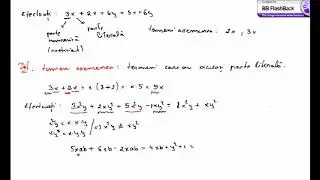 Efectuați: 3x + 2x + 6y + 5x + 6y
parte numerică (coeficient)
parte literală
termeni asemenea: 2x, 3x
Def. termeni asemenea: termeni care au aceeași parte literală.
3x + 2x = x(3+2) = x·5 = 5x
Efectuați: 3x²y + 2xy² + 5x²y - 1xy² = 8x²y + xy²
x²y = x·x·y
xy² = x·y·y
=> x²y ≠ xy²
5xab + 6ab - 2xab - 4ab + y² + 1 =
BB FlashBack